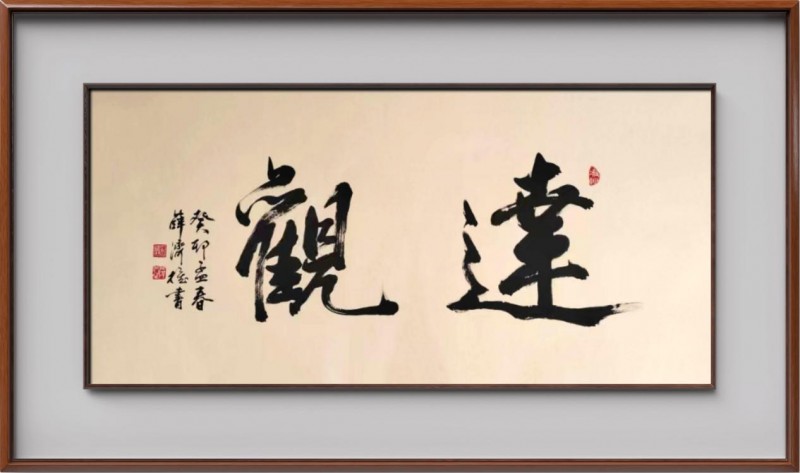 達觀
癸卯孟春
薛濟稳書